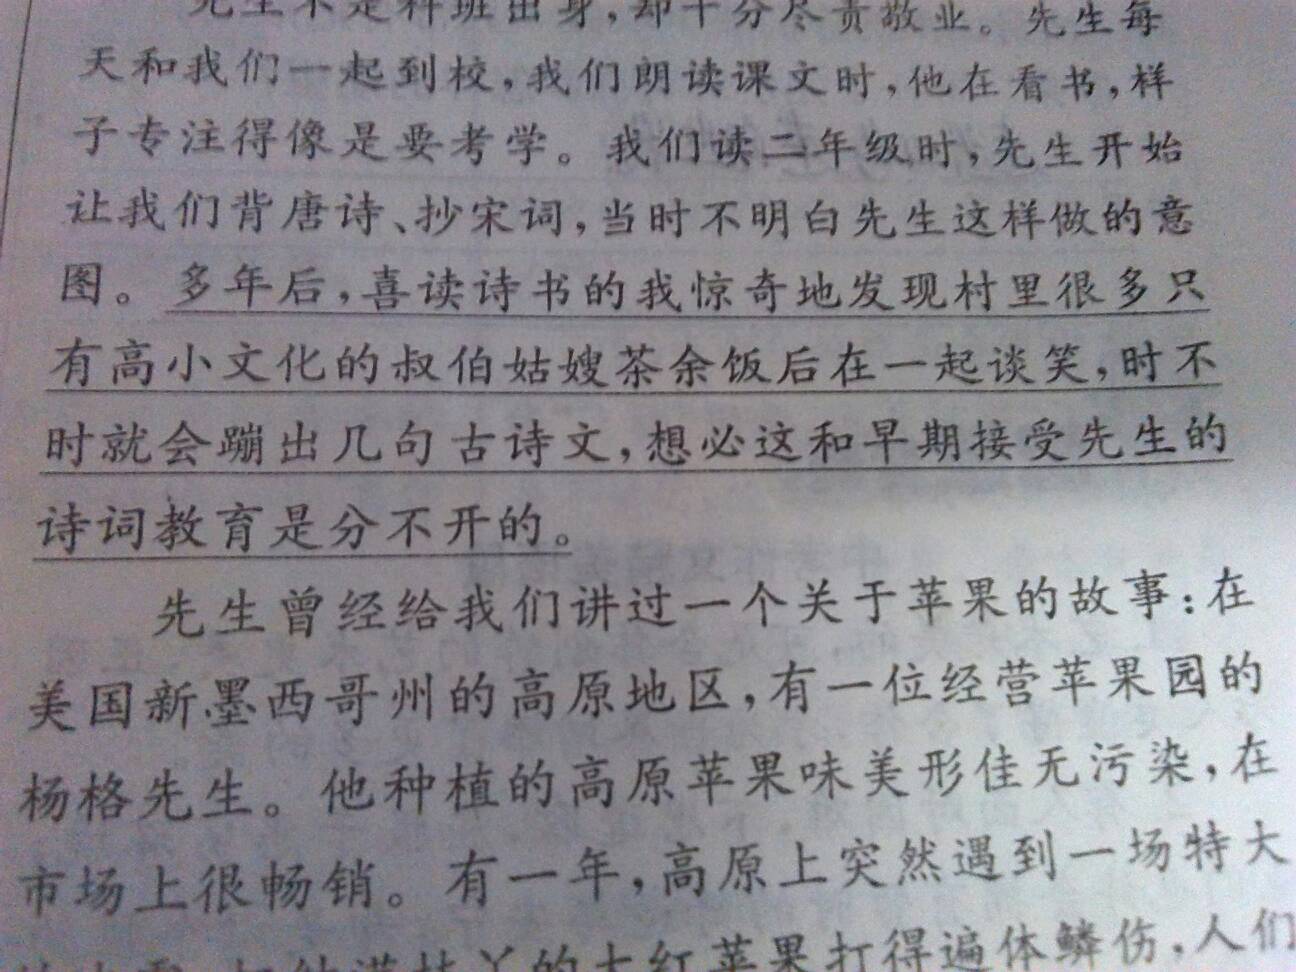 先生不是科班出身，却十分尽责敬业。先生每
天和我们一起到校，我们朗读课文时，他在看书，样
子专注得像是要考学。我们读二年级时，先生开始
让我们背唐诗、抄宋词，当时不明白先生这样做的意
图。多年后，喜读诗书的我惊奇地发现村里很多只
有高小文化的叔伯姑嫂茶余饭后在一起谈笑，时不
时就会蹦出几句古诗文，想必这和早期接受先生的
诗词教育是分不开的。
先生曾经给我们讲过一个关于苹果的故事：在
美国新墨西哥州的高原地区，有一位经营苹果园的
杨格先生。他种植的高原苹果味美形佳无污染，在
市场上很畅销。有一年，高原上突然遇到一场特大
满枝丫的大红苹果打得遍体鳞伤，人们